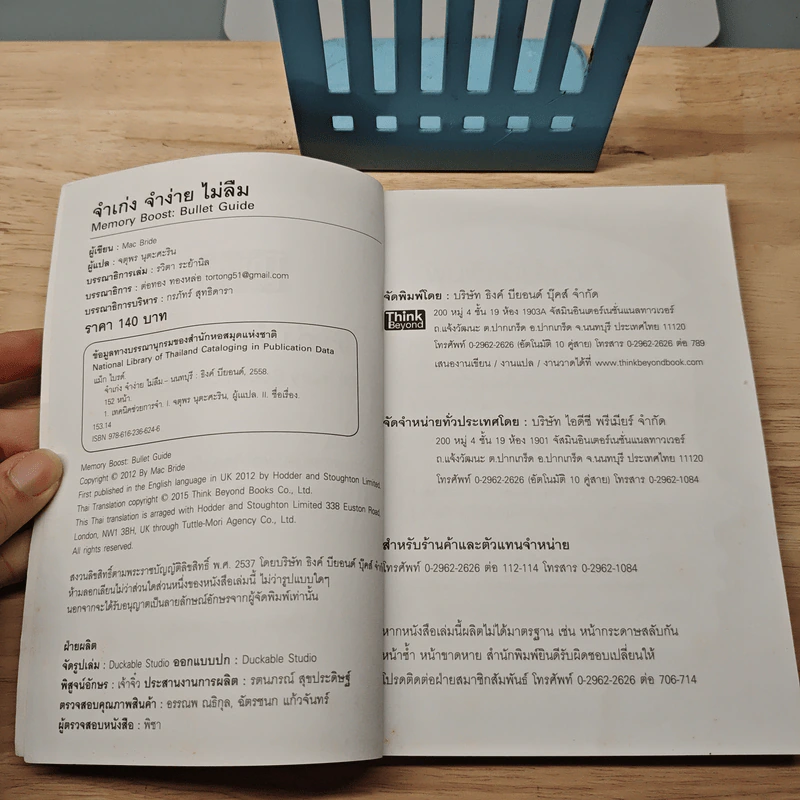 จำเก่ง จำง่าย ไม่ลืม
Memory Boost: Bullet Guide
ผู้เขียน : Mac Bride
ผู้แปล : จตุพร นุตะศะริน
บรรณาธิการเล่ม : รวิตา ระย้านิล
บรรณาธิการ : ต่อทอง ทองหล่อ tortong51@gmail.com
บรรณาธิการบริหาร : กรภัทร์ สุทธิดารา
ราคา 140 บาท
ข้อมูลทางบรรณานุกรมของสำนักหอสมุดแห่งชาติ
National Library of Thailand Cataloging in Publication Data
แม็ก ไบรด์.
จำเก่ง จำง่าย ไม่ลืม.-- นนทบุรี : ธิงค์ บียอนด์, 2558.
152 หน้า.
1. เทคนิคช่วยการจำ. I. จตุพร นุตะศะริน, ผู้แปล. II. ชื่อเรื่อง.
153.14
ISBN 978-616-236-624-6
Memory Boost: Bullet Guide
Copyright © 2012 By Mac Bride
First published in the English language in UK 2012 by Hodder and Stoughton Limited.
Thai Translation copyright © 2015 Think Beyond Books Co., Ltd.
This Thai translation is arraged with Hodder and Stoughton Limited 338 Euston Road,
London, NW1 3BH, UK through Tuttle-Mori Agency Co., Ltd.
All rights reserved.
สงวนลิขสิทธิ์ตามพระราชบัญญัติลิขสิทธิ์ พ.ศ. 2537 โดยบริษัท ธิงค์ บียอนด์ บุ๊คส์
ห้ามลอกเลียนไม่ว่าส่วนใดส่วนหนึ่งของหนังสือเล่มนี้ ไม่ว่ารูปแบบใดๆ
นอกจากจะได้รับอนุญาตเป็นลายลักษณ์อักษรจากผู้จัดพิมพ์เท่านั้น
ฝ่ายผลิต
จัดรูปเล่ม : Duckable Studio ออกแบบปก : Duckable Studio
พิสูจน์อักษร : เจ้าจิ๋ว ประสานงานการผลิต : รตนภรณ์ สุขประดิษฐ์
ตรวจสอบคุณภาพสินค้า : อรรณพ ณธิกุล, ฉัตรชนก แก้วจันทร์
ผู้ตรวจสอบหนังสือ : พิชา
จัดพิมพ์โดย : บริษัท ธิงค์ บียอนด์ บุ๊คส์ จำกัด
Think
Beyond
200 หมู่ 4 ชั้น 19 ห้อง 1903A จัสมินอินเตอร์เนชั่นแนลทาวเวอร์
ถ.แจ้งวัฒนะ ต.ปากเกร็ด อ.ปากเกร็ด จ.นนทบุรี ประเทศไทย 11120
โทรศัพท์ 0-2962-2626 (อัตโนมัติ 10 คู่สาย) โทรสาร 0-2962-2626 ต่อ 789
เสนองานเขียน / งานแปล / งานวาดได้ที่ www.thinkbeyondbook.com
จัดจำหน่ายทั่วประเทศโดย : บริษัท ไอดีซี พรีเมียร์ จำกัด
200 หมู่ 4 ชั้น 19 ห้อง 1901 จัสมินอินเตอร์เนชั่นแนลทาวเวอร์
ถ.แจ้งวัฒนะ ต.ปากเกร็ด อ.ปากเกร็ด จ.นนทบุรี ประเทศไทย 11120
โทรศัพท์ 0-2962-2626 (อัตโนมัติ 10 คู่สาย) โทรสาร 0-2962-1084
สำหรับร้านค้าและตัวแทนจำหน่าย
โทรศัพท์ 0-2962-2626 ต่อ 112-114 โทรสาร 0-2962-1084
หากหนังสือเล่มนี้ผลิตไม่ได้มาตรฐาน เช่น หน้ากระดาษสลับกัน
หน้าซ้ำ หน้าขาดหาย สำนักพิมพ์ยินดีรับผิดชอบเปลี่ยนให้
โปรดติดต่อฝ่ายสมาชิกสัมพันธ์ โทรศัพท์ 0-2962-2626 ต่อ 706-714